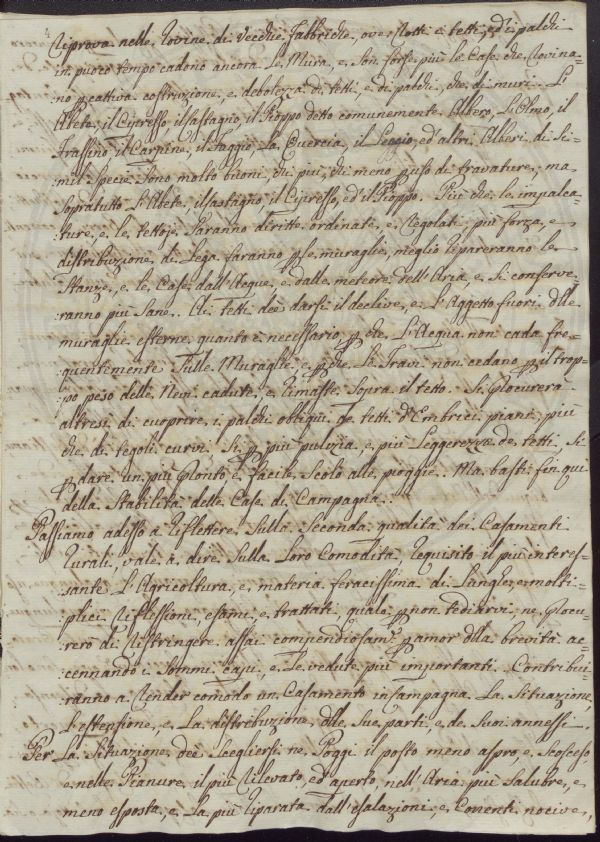 4
riprova nelle rovine di Vecchie Fabbriche, ove rotti i tetti, ed i palchi
in puoco tempo cadono ancora le Mura, e son forse più le Case che rovina-
no p cattiva costruzione, e debolezza di tetti, e di palchi, che di muri. Li
Abete, il Cipresso, il Castagno, il Pioppo detto comunemente Albero, L'Olmo, il
Frassino, il Carpine, il Faggio, La Quercia, il Leccio, ed altri Alberi di si-
mil specie sono molto buoni, chi più, chi meno p uso di travature, ma
sopratutto L'Abete, il Castagno, il Cipresso, ed il Pioppo. Più che le impalca-
ture, e le tettoje saranno diritte ordinate, e regolate, più forza, e
distribuzione di Lega faranno p le muraglie, meglio ripareranno le
Stanze, e le Case dall'Acque, e dalle meteore dell'Aria, e si conserve-
ranno più sane. Ai tetti deè darsi il declive, e L'Aggetto fuori dlle
muraglie esterne quanto è necessario p che L'Acqua non cada fre-
quentemente sulle Muraglie, e p che Le Travi non cedano p il trop-
po peso delle Nevi cadute, e rimaste sopra il tetto. Si procurerà
altresì di cuoprire i palchi obliqui de tetti d'Embrici piane più
che di tegoli curvi. Si p più pulizia, e più Leggerezza de tetti, Si
p dare un più pronto e facile scolo alle pioggie. Ma basti fin qui
della Stabilità delle Case di Campagna.
Passiamo adesso a riflettere sulla seconda qualità dei Casamenti
rurali, vale a dire sulla Loro Comodità requisito il più interes-
sante L'Agricoltura, e materia feracissima di Lunghe, e molti-
plici riflessioni, esami, e trattati, quale p non tediarvi, ne procu-
rerò di ristringere assai compendiosamte p amor dlla brevità ac-
cennando i sommi capi, e Le vedute più importanti. Contribui-
ranno a render comodo un Casamento in Campagna La Situazione,
L'estensione, e La distribuzione dlle sue parti, e de suoi annessi.
Per La Situazione deè scegliersi ne Poggi il posto meno aspro e scosceso,
e nelle Pianure il più rilevato, ed aperto, nell'Aria più salubre, e
meno esposta, e La più riparata dall'esalazioni, e Correnti nocive,